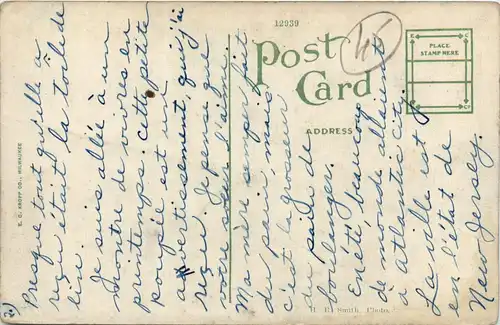 12939
Post Card
45
PLACE
STAMP HERE
ADDRESS
E. C. KROPP CO., MILWAUKEE
H. E. Smith, Photo.
2)
Presque tout qu'elle a
reçu était la toile de
lin.
Je suis allée à un
montre de vivres en
printemps. Cette petite
poupée est un
avertisement, que j'ai
reçu. Je pense que
votre sœur l'aime.
Ma mère semper fait
du pain, mais
c'est la grosseur
du pain de
boulanger.
En été beaucoup
de monde allaient
a atlantic City.
La ville est
en l'état de
New Jersey.